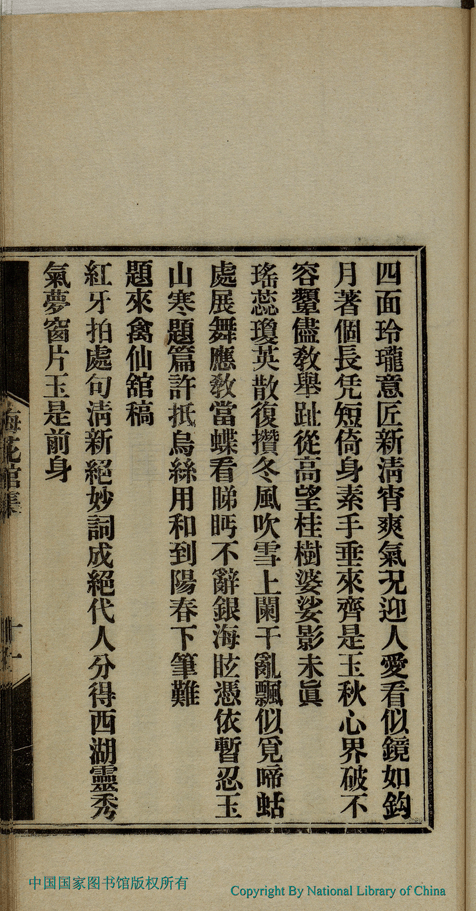 四面玲瓏意匠新淸宵爽氣况迎人愛看似鏡如鈎
月著個長凭短倚身素手垂來齊是玉秋心界破不
容顰儘敎舉趾從高望桂樹婆娑影未眞
瑤蕊瓊英散復攢冬風吹雪上闌干亂飄似覓啼蛄
處展舞應敎當蝶看睇眄不辭銀海眩憑依暫忍玉
山寒題篇許抵烏絲用和到陽春下筆難
題來禽仙舘稿
紅牙拍處句淸新絕妙詞成絕代人分得西湖靈秀
氣夢窗片玉是前身
梅花舘集
十一
中国国家图书馆版权所有
Copyright By National Library of China